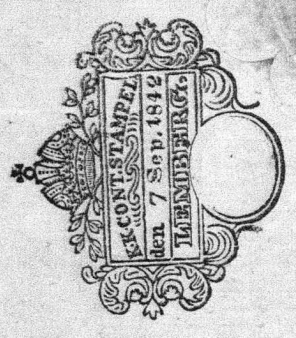 K.K.CONT.STAMPEL
den 7 Sep. 1842
LEMBERG.